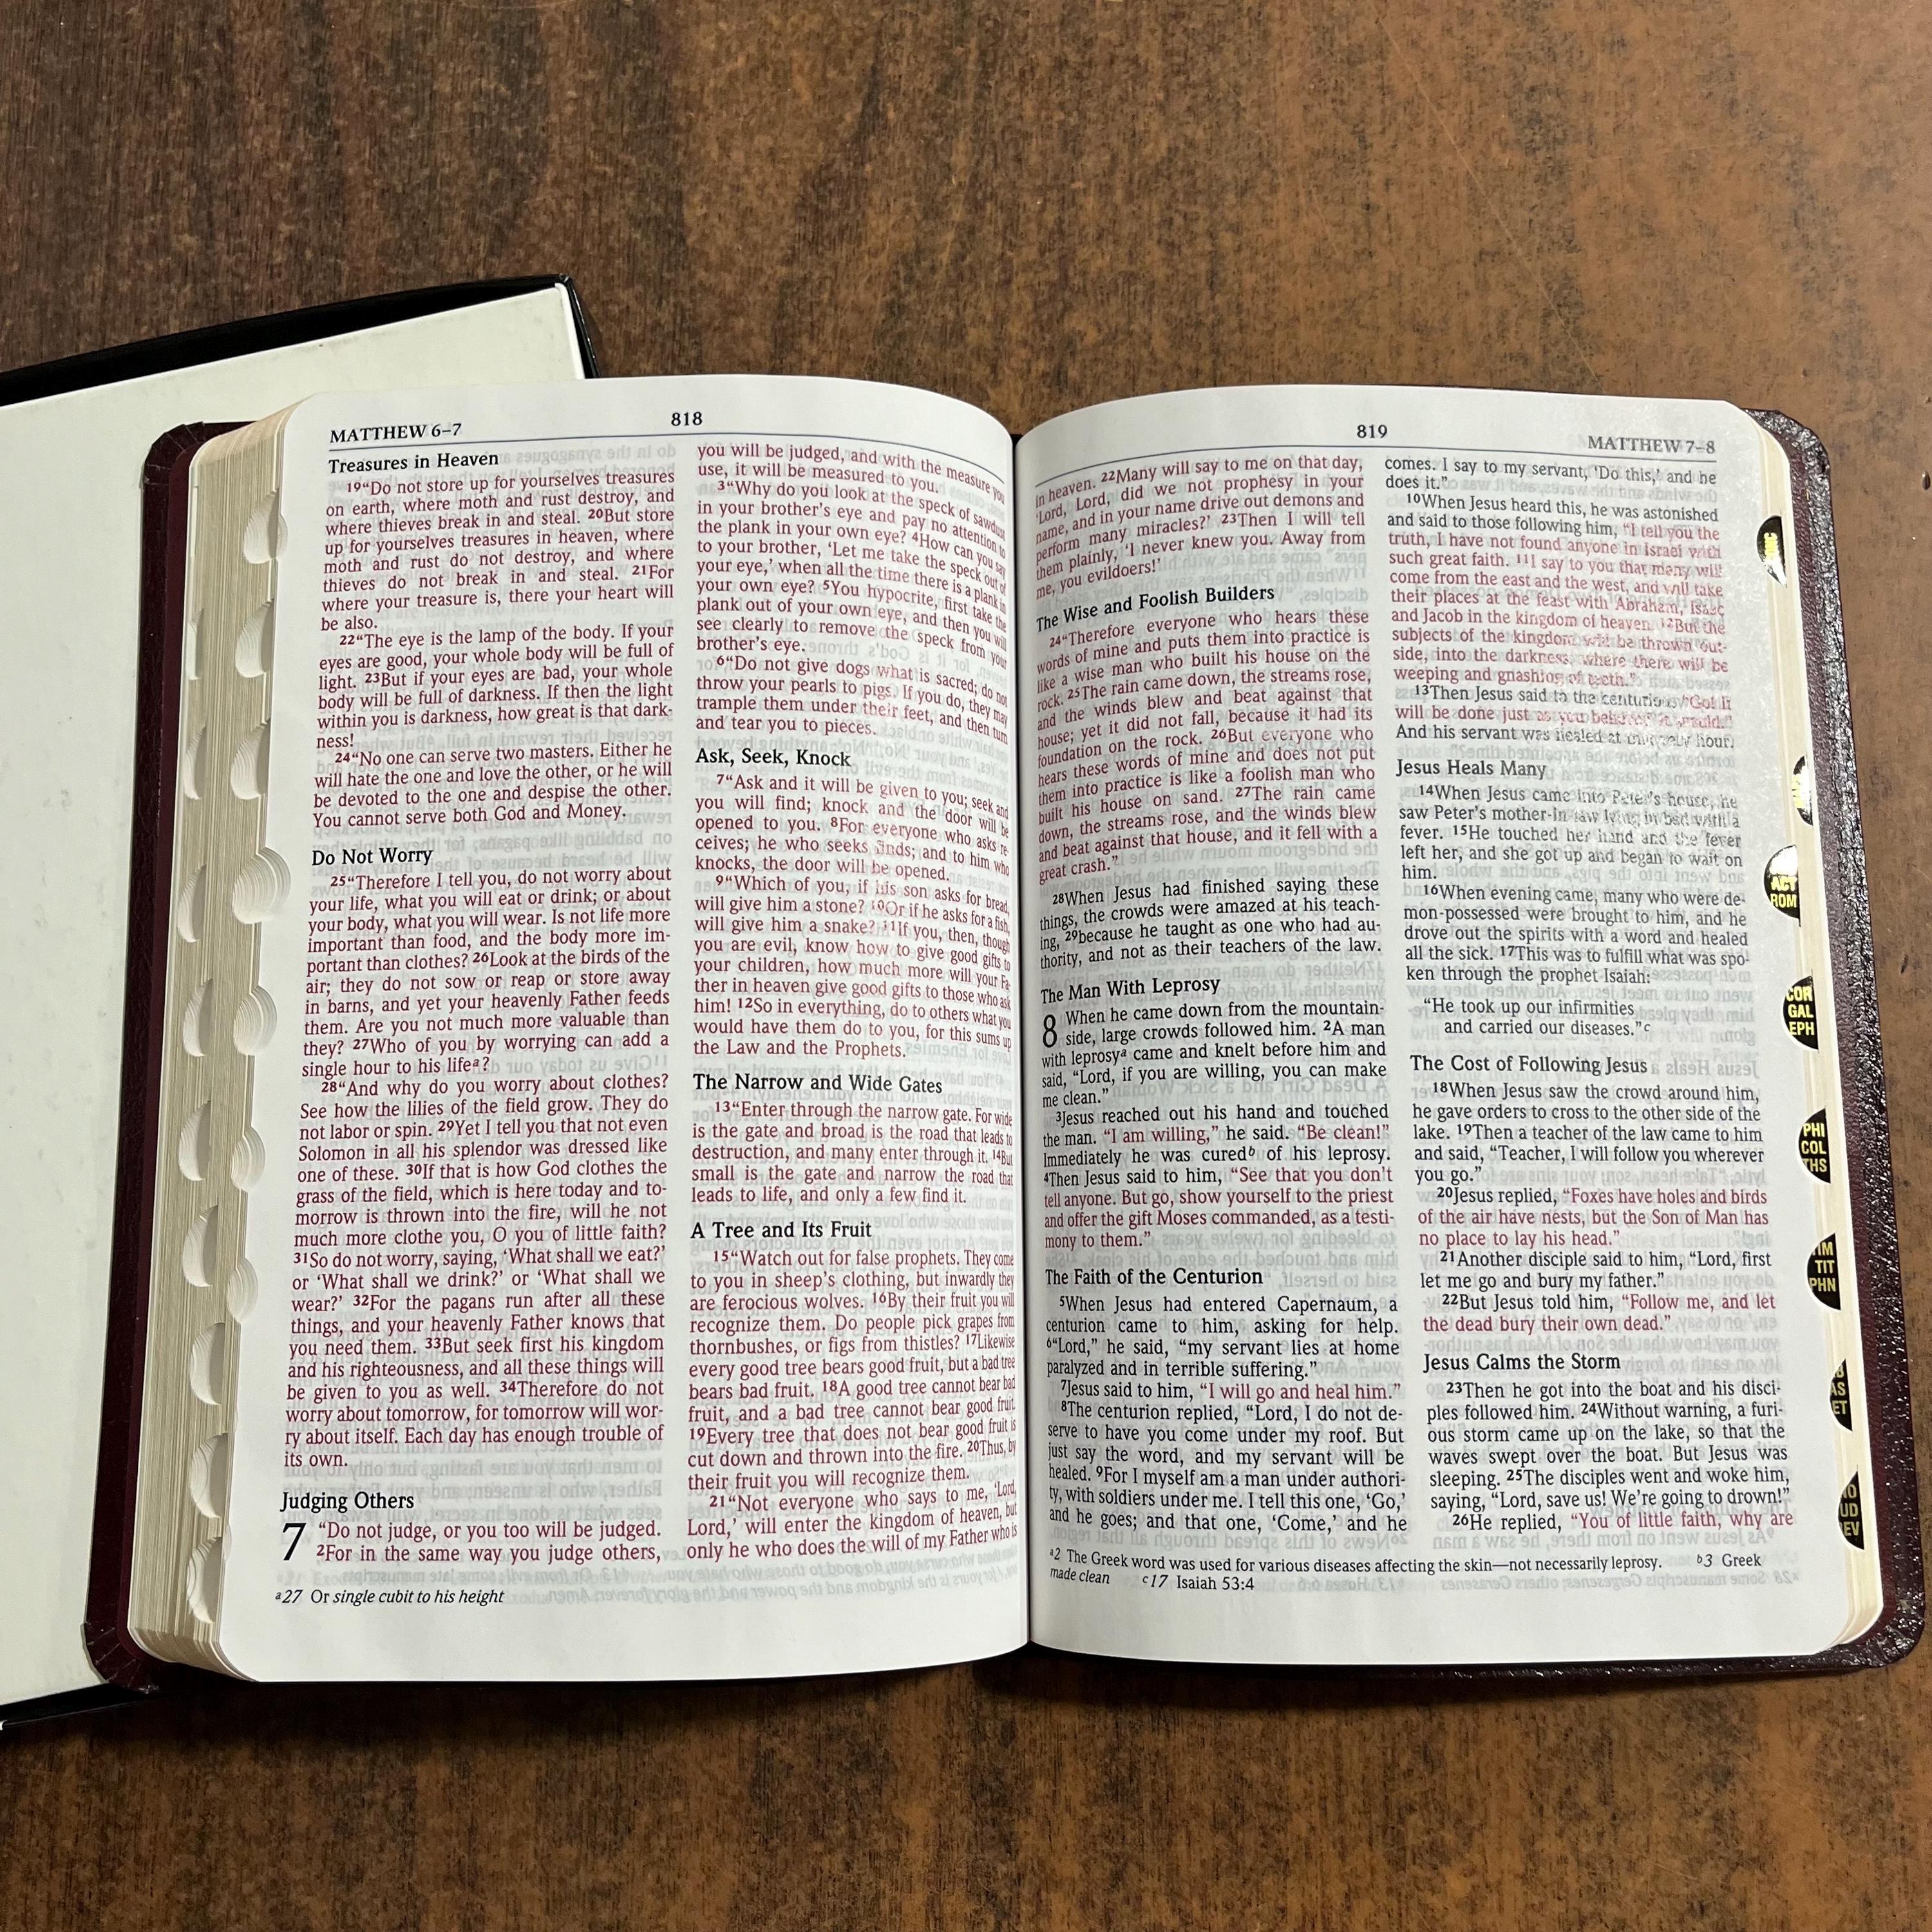 MATTHEW 6–7
818
Treasures in Heaven
19“Do not store up for yourselves treasures
on earth, where moth and rust destroy, and
where thieves break in and steal. 20But store
up for yourselves treasures in heaven, where
moth and rust do not destroy, and where
thieves do not break in and steal. 21For
where your treasure is, there your heart will
be also.
22“The eye is the lamp of the body. If your
eyes are good, your whole body will be full of
light. 23But if your eyes are bad, your whole
body will be full of darkness. If then the light
within you is darkness, how great is that dark-
ness!
24“No one can serve two masters. Either he
will hate the one and love the other, or he will
be devoted to the one and despise the other.
You cannot serve both God and Money.
Do Not Worry
25“Therefore I tell you, do not worry about
your life, what you will eat or drink; or about
your body, what you will wear. Is not life more
important than food, and the body more im-
portant than clothes? 26Look at the birds of the
air; they do not sow or reap or store away
in barns, and yet your heavenly Father feeds
them. Are you not much more valuable than
they? 27Who of you by worrying can add a
single hour to his lifea?
28“And why do you worry about clothes?
See how the lilies of the field grow. They do
not labor or spin. 29Yet I tell you that not even
Solomon in all his splendor was dressed like
one of these. 30If that is how God clothes the
grass of the field, which is here today and to-
morrow is thrown into the fire, will he not
much more clothe you, O you of little faith?
31So do not worry, saying, ‘What shall we eat?’
or ‘What shall we drink?’ or ‘What shall we
wear?’ 32For the pagans run after all these
things, and your heavenly Father knows that
you need them. 33But seek first his kingdom
and his righteousness, and all these things will
be given to you as well. 34Therefore do not
worry about tomorrow, for tomorrow will wor-
ry about itself. Each day has enough trouble of
its own.
Judging Others
7 “Do not judge, or you too will be judged.
2For in the same way you judge others,
you will be judged, and with the measure you
use, it will be measured to you.
3“Why do you look at the speck of sawdust
in your brother’s eye and pay no attention to
the plank in your own eye? 4How can you say
to your brother, ‘Let me take the speck out of
your eye,’ when all the time there is a plank in
your own eye? 5You hypocrite, first take the
plank out of your own eye, and then you will
see clearly to remove the speck from your
brother’s eye.
6“Do not give dogs what is sacred; do not
throw your pearls to pigs. If you do, they may
trample them under their feet, and then turn
and tear you to pieces.
Ask, Seek, Knock
7“Ask and it will be given to you; seek and
you will find; knock and the door will be
opened to you. 8For everyone who asks re-
ceives; he who seeks finds; and to him who
knocks, the door will be opened.
9“Which of you, if his son asks for bread,
will give him a stone? 10Or if he asks for a fish,
will give him a snake? 11If you, then, though
you are evil, know how to give good gifts to
your children, how much more will your Fa-
ther in heaven give good gifts to those who ask
him! 12So in everything, do to others what you
would have them do to you, for this sums up
the Law and the Prophets.
The Narrow and Wide Gates
13“Enter through the narrow gate. For wide
is the gate and broad is the road that leads to
destruction, and many enter through it. 14But
small is the gate and narrow the road that
leads to life, and only a few find it.
A Tree and Its Fruit
15“Watch out for false prophets. They come
to you in sheep’s clothing, but inwardly they
are ferocious wolves. 16By their fruit you will
recognize them. Do people pick grapes from
thornbushes, or figs from thistles? 17Likewise
every good tree bears good fruit, but a bad tree
bears bad fruit. 18A good tree cannot bear bad
fruit, and a bad tree cannot bear good fruit.
19Every tree that does not bear good fruit is
cut down and thrown into the fire. 20Thus, by
their fruit you will recognize them.
21“Not everyone who says to me, ‘Lord,
Lord,’ will enter the kingdom of heaven, but
only he who does the will of my Father who is
a27 Or single cubit to his height
819
MATTHEW 7–8
in heaven. 22Many will say to me on that day,
‘Lord, Lord, did we not prophesy in your
name, and in your name drive out demons and
perform many miracles?’ 23Then I will tell
them plainly, ‘I never knew you. Away from
me, you evildoers!’
The Wise and Foolish Builders
24“Therefore everyone who hears these
words of mine and puts them into practice is
like a wise man who built his house on the
rock. 25The rain came down, the streams rose,
and the winds blew and beat against that
house; yet it did not fall, because it had its
foundation on the rock. 26But everyone who
hears these words of mine and does not put
them into practice is like a foolish man who
built his house on sand. 27The rain came
down, the streams rose, and the winds blew
and beat against that house, and it fell with a
great crash.”
28When Jesus had finished saying these
things, the crowds were amazed at his teach-
ing, 29because he taught as one who had au-
thority, and not as their teachers of the law.
The Man With Leprosy
8 When he came down from the mountain-
side, large crowds followed him. 2A man
with leprosya came and knelt before him and
said, “Lord, if you are willing, you can make
me clean.”
3Jesus reached out his hand and touched
the man. “I am willing,” he said. “Be clean!”
Immediately he was curedb of his leprosy.
4Then Jesus said to him, “See that you don’t
tell anyone. But go, show yourself to the priest
and offer the gift Moses commanded, as a testi-
mony to them.”
The Faith of the Centurion
5When Jesus had entered Capernaum, a
centurion came to him, asking for help.
6“Lord,” he said, “my servant lies at home
paralyzed and in terrible suffering.”
7Jesus said to him, “I will go and heal him.”
8The centurion replied, “Lord, I do not de-
serve to have you come under my roof. But
just say the word, and my servant will be
healed. 9For I myself am a man under authori-
ty, with soldiers under me. I tell this one, ‘Go,’
and he goes; and that one, ‘Come,’ and he
comes. I say to my servant, ‘Do this,’ and he
does it.”
10When Jesus heard this, he was astonished
and said to those following him, “I tell you the
truth, I have not found anyone in Israel with
such great faith. 11I say to you that many will
come from the east and the west, and will take
their places at the feast with Abraham, Isaac
and Jacob in the kingdom of heaven. 12But the
subjects of the kingdom will be thrown out-
side, into the darkness, where there will be
weeping and gnashing of teeth.”
13Then Jesus said to the centurion, “Go! It
will be done just as you believed it would.”
And his servant was healed at that very hour.
Jesus Heals Many
14When Jesus came into Peter’s house, he
saw Peter’s mother-in-law lying in bed with a
fever. 15He touched her hand and the fever
left her, and she got up and began to wait on
him.
16When evening came, many who were de-
mon-possessed were brought to him, and he
drove out the spirits with a word and healed
all the sick. 17This was to fulfill what was spo-
ken through the prophet Isaiah:
“He took up our infirmities
and carried our diseases.”c
The Cost of Following Jesus
18When Jesus saw the crowd around him,
he gave orders to cross to the other side of the
lake. 19Then a teacher of the law came to him
and said, “Teacher, I will follow you wherever
you go.”
20Jesus replied, “Foxes have holes and birds
of the air have nests, but the Son of Man has
no place to lay his head.”
21Another disciple said to him, “Lord, first
let me go and bury my father.”
22But Jesus told him, “Follow me, and let
the dead bury their own dead.”
Jesus Calms the Storm
23Then he got into the boat and his disci-
ples followed him. 24Without warning, a furi-
ous storm came up on the lake, so that the
waves swept over the boat. But Jesus was
sleeping. 25The disciples went and woke him,
saying, “Lord, save us! We’re going to drown!”
26He replied, “You of little faith, why are
a2 The Greek word was used for various diseases affecting the skin—not necessarily leprosy. b3 Greek
made clean c17 Isaiah 53:4
ACT
ROM
COR
GAL
EPH
PHI
COL
THS
TIT
PHN